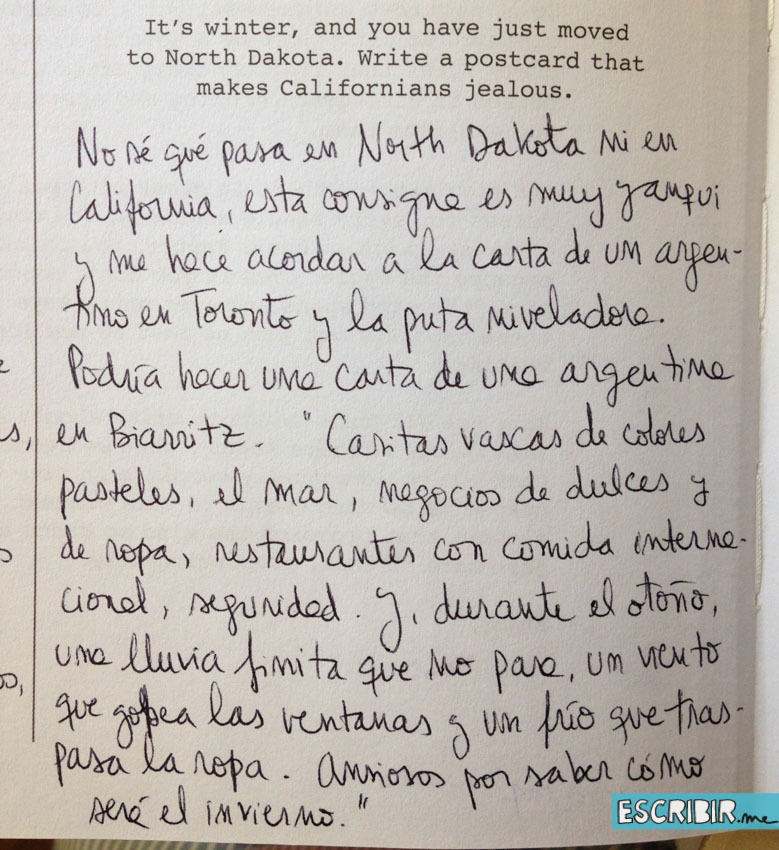 It's winter, and you have just moved
to North Dakota. Write a postcard that
makes Californians jealous.
No sé qué pasa en North Dakota ni en
California, esta consigna es muy yanqui
y me hace acordar a la carta de un argen-
tino en Toronto y la puta niveladora.
Podría hacer una carta de una argentina
en Biarritz. "Casitas vascas de colores
pasteles, el mar, negocios de dulces y
de ropa, restaurantes con comida interna-
cional, seguridad. Y, durante el otoño,
una lluvia finita que no para, un viento
que golpea las ventanas y un frío que tras-
pasa la ropa. Ansiosos por saber cómo
será el invierno."
s,
os,
ESCRIBIR.me